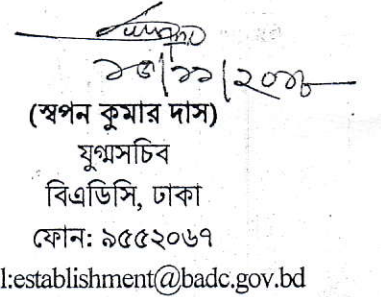 (স্বপন কুমার দাস)
যুগ্মসচিব
বিএডিসি, ঢাকা
ফোন: ৯৫৫২০৬৭
l:establishment@badc.gov.bd